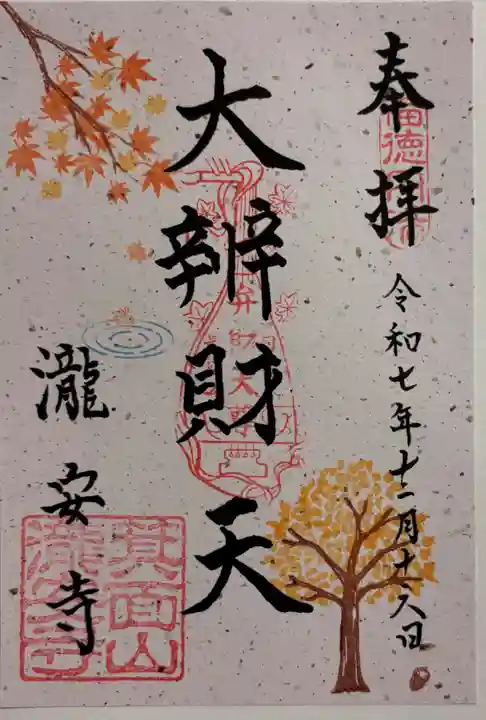 奉拝
令和七年十一月十六日
大辨財天
瀧安寺
箕面山
瀧安寺